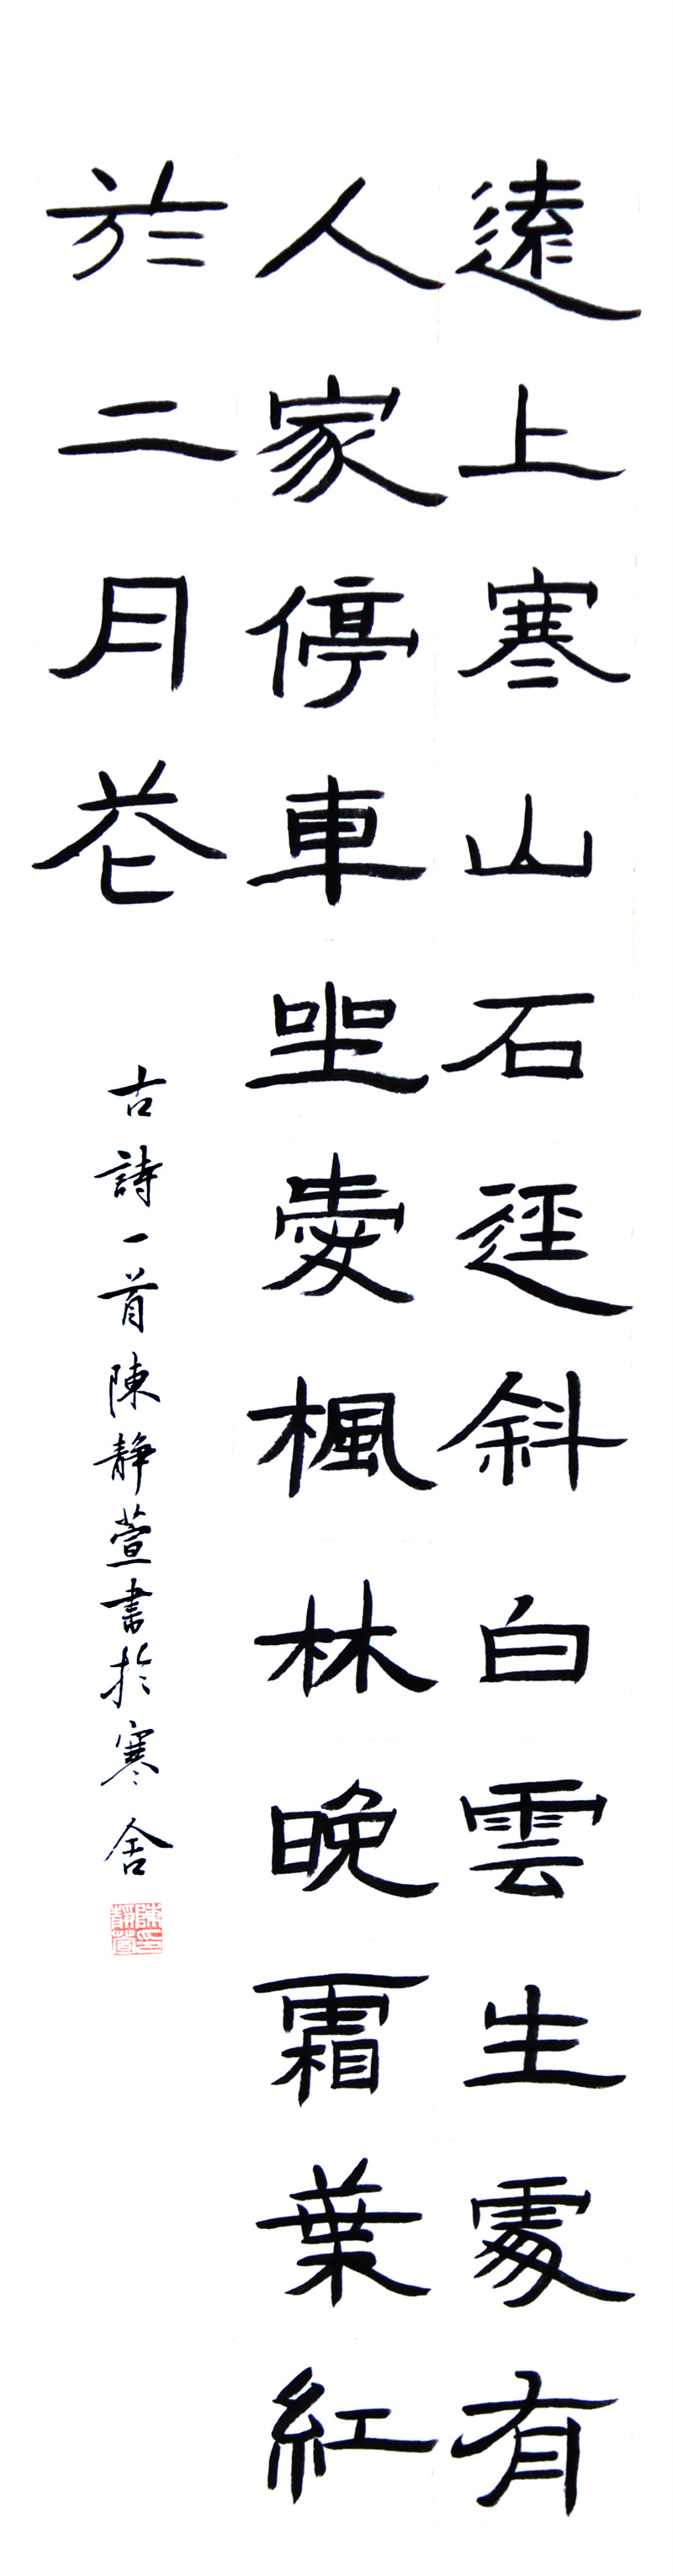 遠上寒山石径斜白雲生處有
人家停車坐愛楓林晚霜葉紅
於二月花
古詩一首陳静萱書於寒舍
陳靜萱印